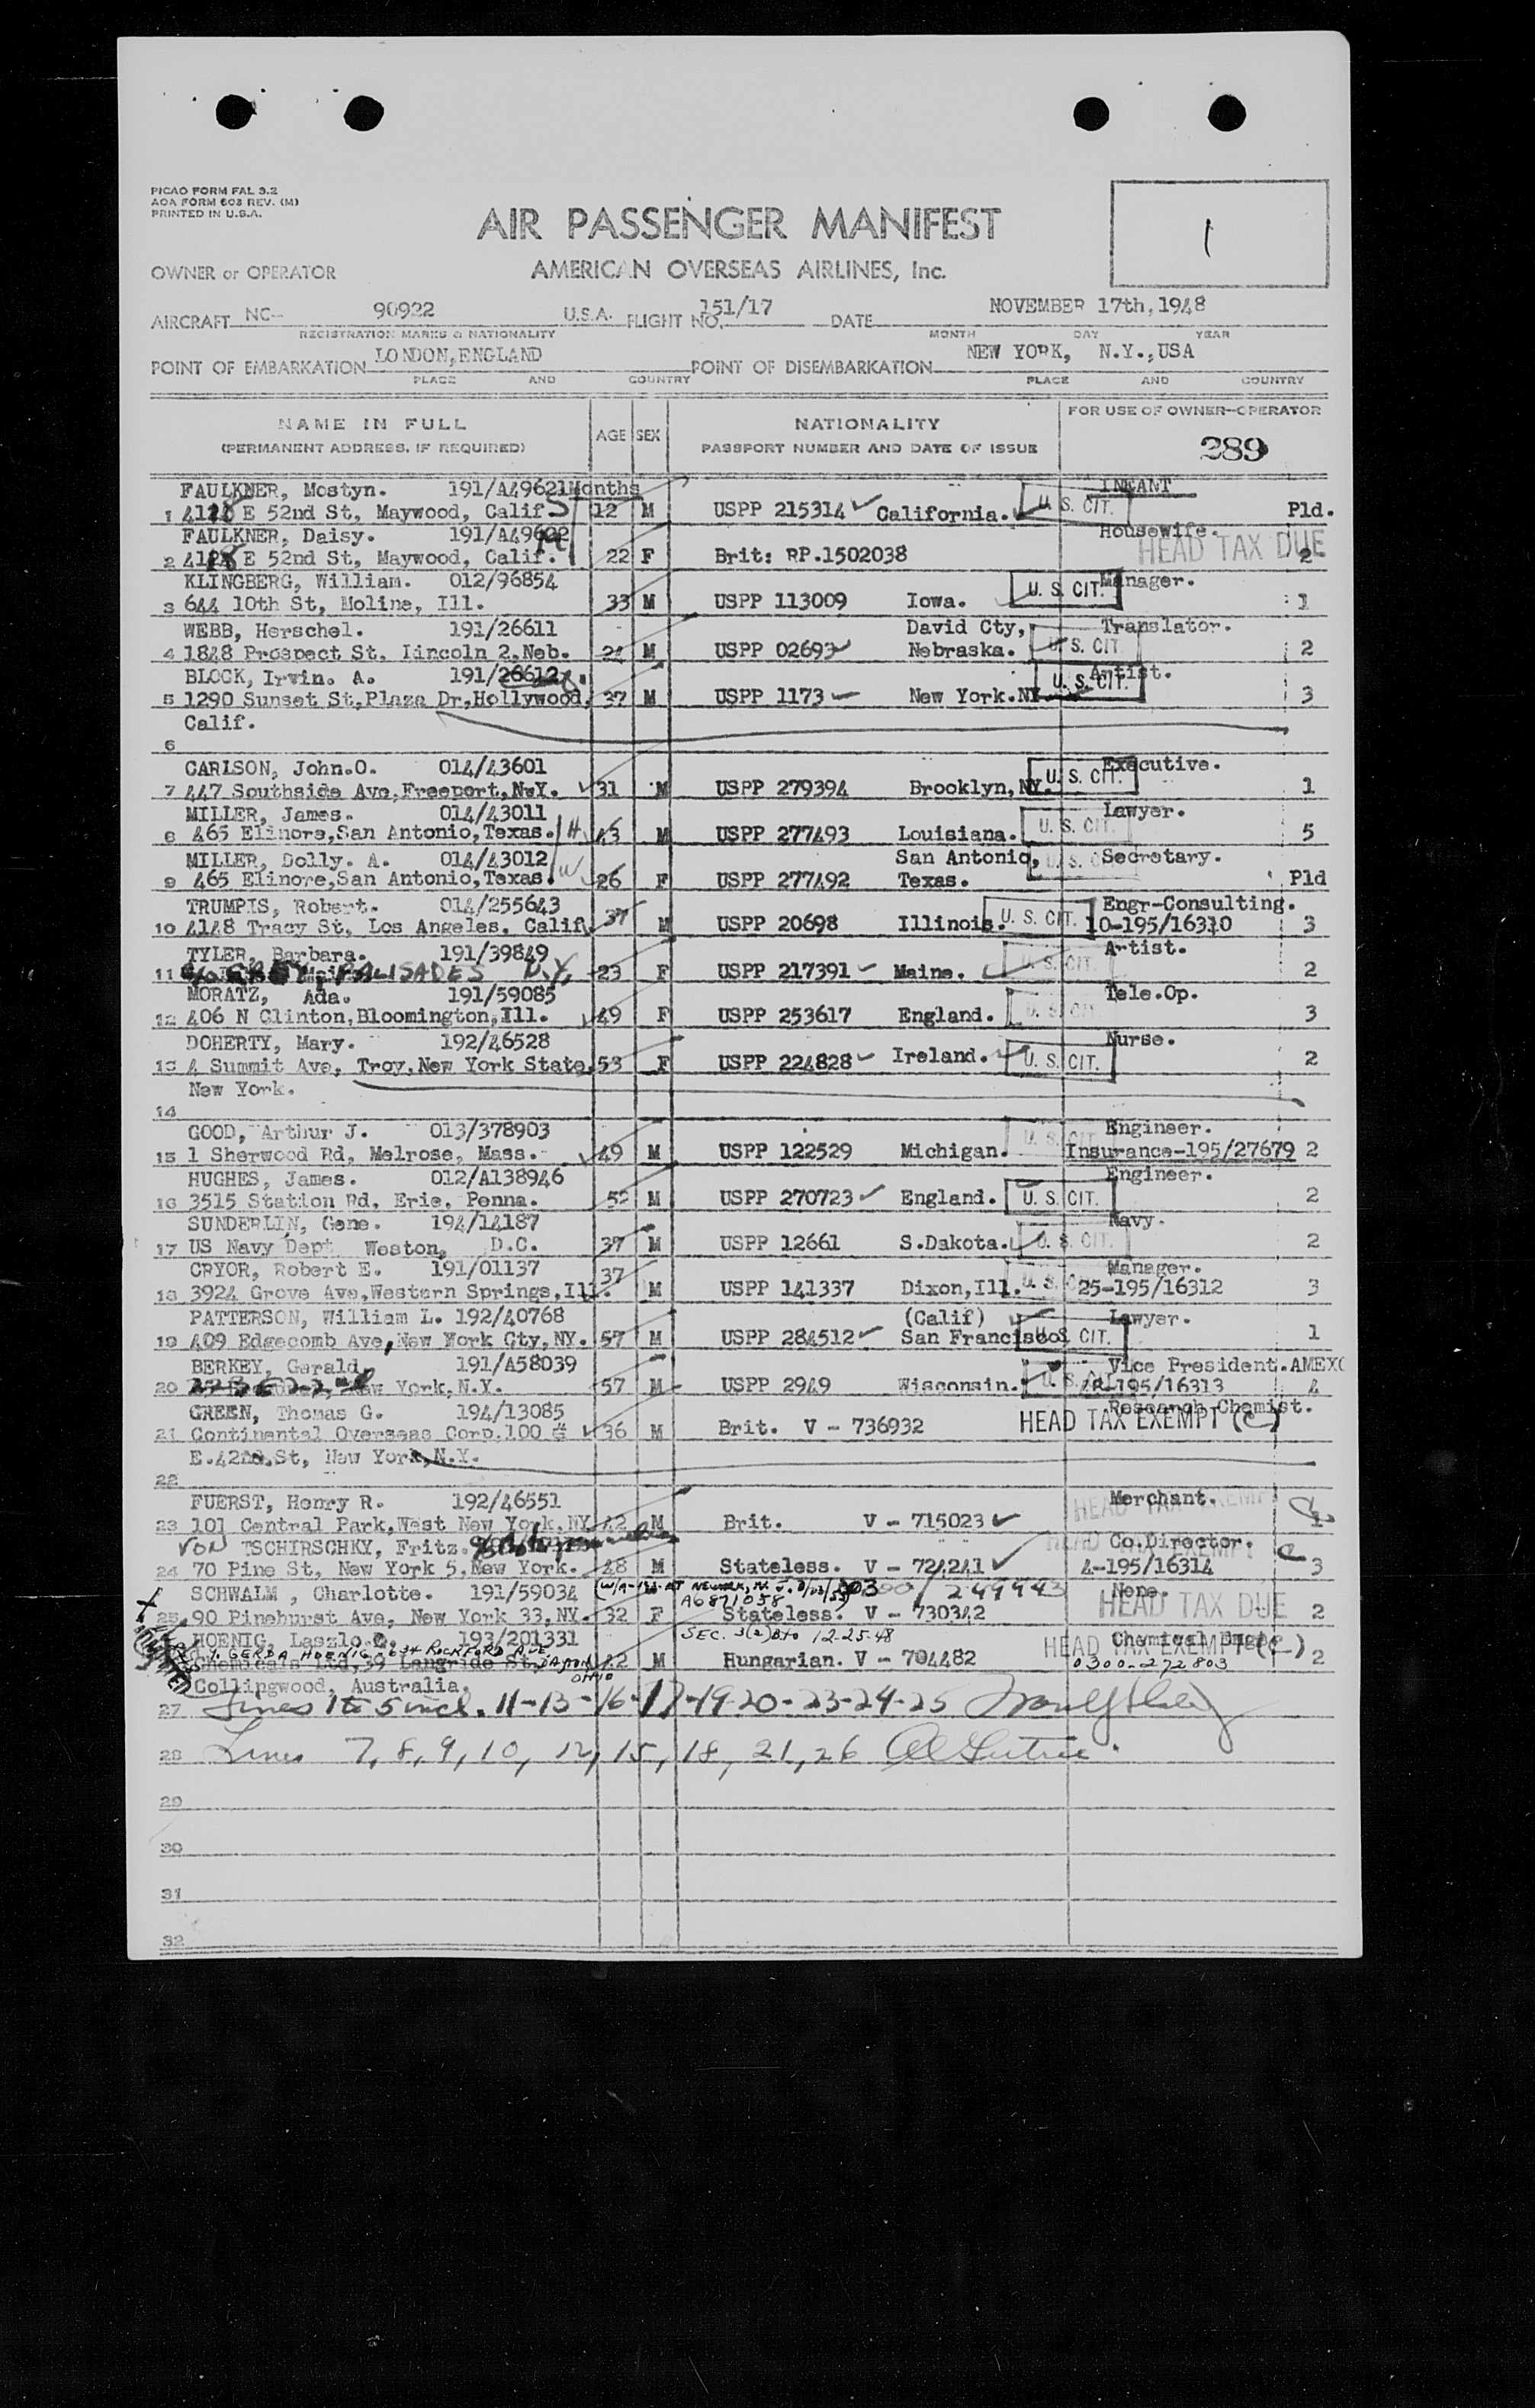 PICAO FORM FAL 3.2
AOA FORM 603 REV. (M)
PRINTED IN U.S.A.
AIR PASSENGER MANIFEST
1
OWNER or OPERATOR AMERICAN OVERSEAS AIRLINES, Inc.
AIRCRAFT NC- 90922 U.S.A. FLIGHT NO. 151/17 DATE NOVEMBER 17th, 1948
REGISTRATION MARKS & NATIONALITY MONTH DAY YEAR
POINT OF EMBARKATION LONDON, ENGLAND POINT OF DISEMBARKATION NEW YORK, N.Y., USA
PLACE AND COUNTRY PLACE AND COUNTRY
NAME IN FULL AGE SEX NATIONALITY FOR USE OF OWNER-OPERATOR
(PERMANENT ADDRESS, IF REQUIRED) PASSPORT NUMBER AND DATE OF ISSUE 289
FAULKNER, Mostyn. 191/A49621 Months INFANT
1 E 52nd St, Maywood, Calif S 12 M USPP 215314 California. U. S. CIT. Pld.
FAULKNER, Daisy. 191/A49622 Housewife.
2 E 52nd St, Maywood, Calif. 22 F Brit: RP.1502038 HEAD TAX DUE 2
KLINGBERG, William. 012/96854 Manager.
3 644 10th St, Moline, Ill. 33 M USPP 113009 Iowa. U. S. CIT. 1
WEBB, Herschel. 191/26611 David Cty, Translator.
4 1848 Prospect St, Lincoln 2, Neb. M USPP 02693 Nebraska. U. S. CIT 2
BLOCK, Irwin. A. 191/26612 Artist.
5 1290 Sunset St, Plaza Dr, Hollywood, 37 M USPP 1173 New York.NY U. S. CIT. 3
Calif.
6
CARLSON, John.O. 014/43601 Executive.
7 447 Southside Ave, Freeport, N.Y. 31 M USPP 279394 Brooklyn, NY. U. S. CIT. 1
MILLER, James. 014/43011 Lawyer.
8 465 Elinore, San Antonio, Texas. H 43 M USPP 277493 Louisiana. U. S. CIT. 5
MILLER, Dolly. A. 014/43012 San Antonio, U. S. C Secretary.
9 465 Elinore, San Antonio, Texas. W 26 F USPP 277492 Texas. Pld
TRUMPIS, Robert. 014/255643 Engr-Consulting.
10 4148 Tracy St, Los Angeles, Calif 37 M USPP 20698 Illinois. U. S. CIT. 10-195/16310 3
TYLER, Barbara. 191/39849 Artist.
11 PALISADES N.Y. 23 F USPP 217391 Maine. U. S. CIT. 2
MORATZ, Ada. 191/59085 Tele.Op.
12 406 N Clinton, Bloomington, Ill. 49 F USPP 253617 England. U. S. CIT 3
DOHERTY, Mary. 192/46528 Nurse.
13 4 Summit Ave, Troy, New York State, 53 F USPP 224828 Ireland. U. S. CIT. 2
New York.
14
GOOD, Arthur J. 013/378903 Engineer.
15 1 Sherwood Rd, Melrose, Mass. 49 M USPP 122529 Michigan. U. S. CIT Insurance-195/27679 2
HUGHES, James. 012/A138946 Engineer.
16 3515 Station Rd, Erie, Penna. M USPP 270723 England. U. S. CIT. 2
SUNDERLIN, Gene. 194/14187 Navy.
17 US Navy Dept Weston, D.C. 37 M USPP 12661 S.Dakota. U. S. CIT. 2
CRYOR, Robert E. 191/01137 Manager.
18 3924 Grove Ave, Western Springs, Ill. 37 M USPP 141337 Dixon, Ill. U. S. 25-195/16312 3
PATTERSON, William L. 192/40768 (Calif) Lawyer.
19 409 Edgecomb Ave, New York Cty, NY. 57 M USPP 284512 San Francisco U. S. CIT. 1
BERKEY, Gerald. 191/A58039 Vice President.AMEXC
20 New York, N.Y. 57 M USPP 2949 Wisconsin. U. S. 195/16313 4
GREEN, Thomas G. 194/13085 Research Chemist.
21 Continental Overseas Corp. 100 36 M Brit. V - 736932 HEAD TAX EXEMPT (C)
E.42nd.St, New York, N.Y.
22
FUERST, Henry R. 192/46551 Merchant.
23 101 Central Park, West New York, NY 42 M Brit. V - 715023 HEAD TAX EXEMPT 1
VON TSCHIRSCHKY, Fritz. Co.Director.
24 70 Pine St, New York 5, New York. 48 M Stateless. V - 724241 HEAD EXEMPT C 4-195/16314 3
SCHWALM, Charlotte. 191/59034 0300 / 249943 None.
A6871058
25 90 Pinehurst Ave, New York 33, NY. 32 F Stateless. V - 730342 HEAD TAX DUE 2
HOENIG, Laszlo. 193/201331 SEC. 3(2) B to 12-25-48 Chemical Engr.
GERDA HOENIG 634 ROCKFORD AVE
26 Chemicals Ltd, 39 Langride St. DAYTON OHIO 42 M Hungarian. V - 704482 HEAD TAX EXEMPT (C) 0300-272803 2
Collingwood, Australia.
27 Lines 1 to 5 incl. 11-13-16-17-19-20-23-24-25
28 Lines 7, 8, 9, 10, 12, 15, 18, 21, 26
29
30
31
32